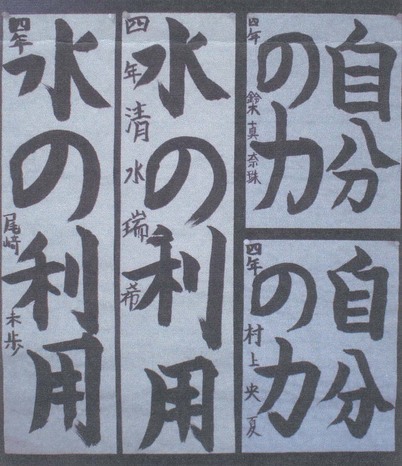 自分
の力
四年 鈴木真奈珠
自分
の力
四年 村上央夏
水の利用
四年 清水瑞希
水の利用
四年 尾崎未歩